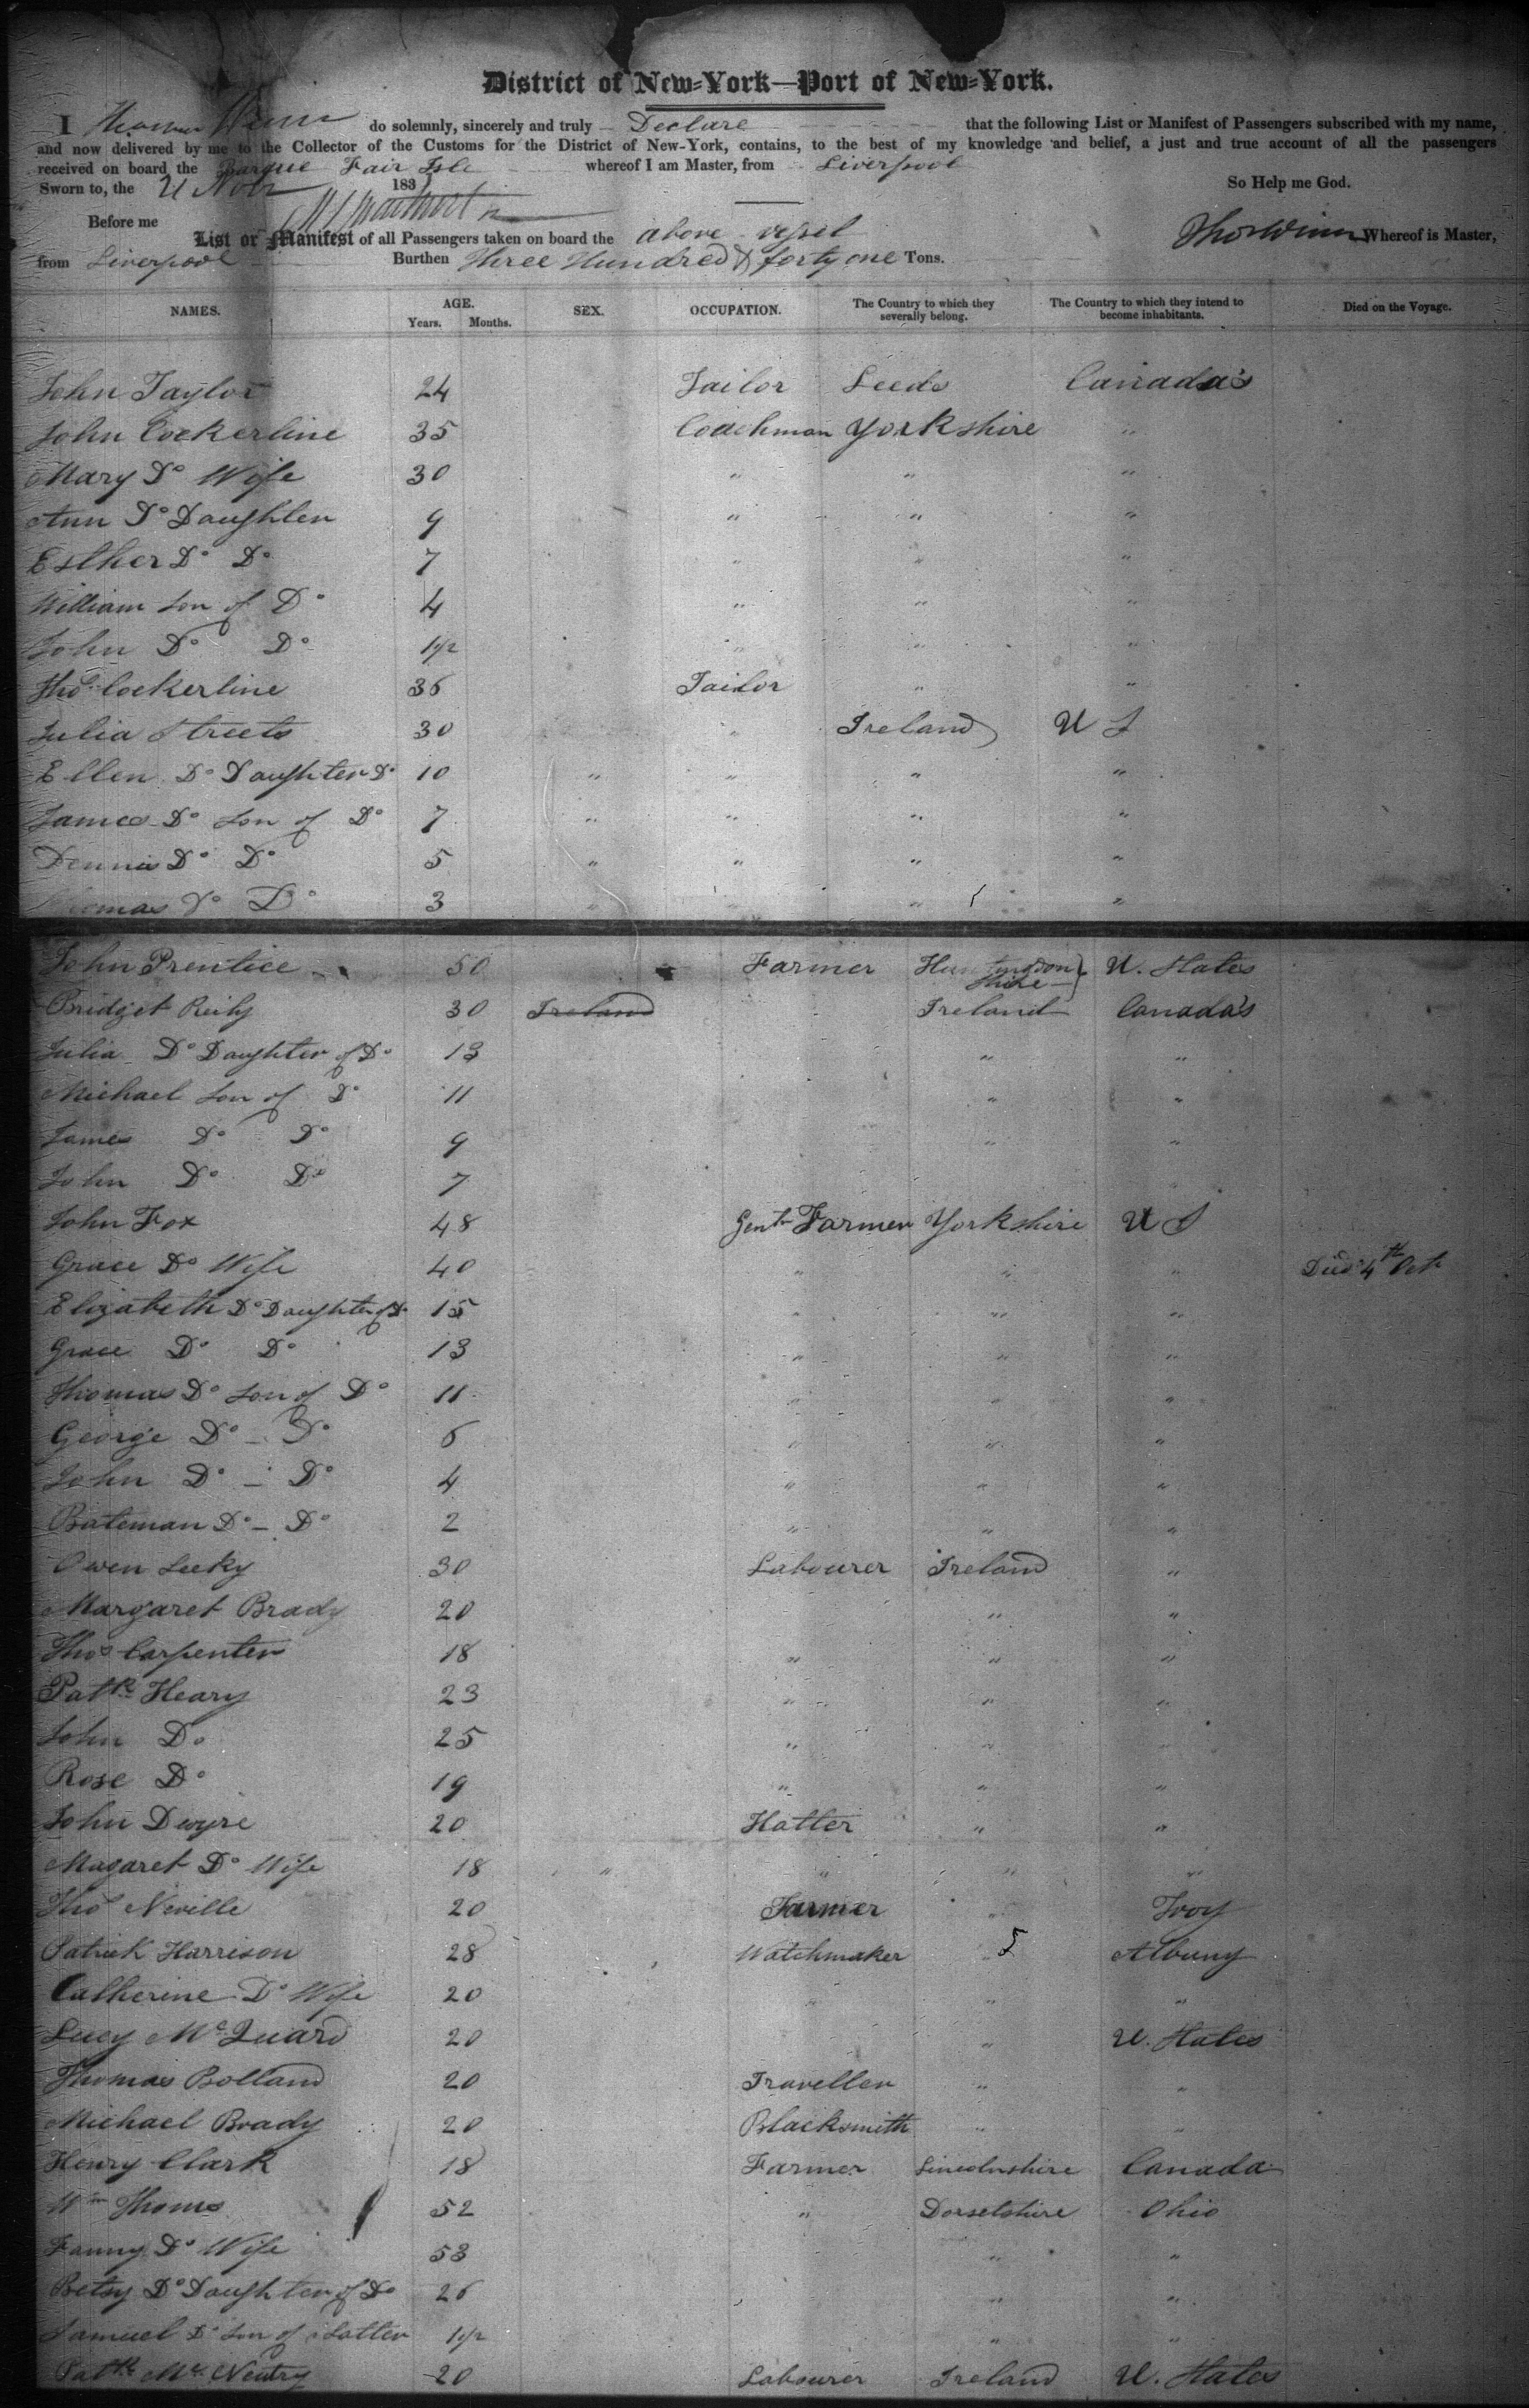 District of New-York—Port of New-York.
I Thomas Winn do solemnly, sincerely and truly Declare that the following List or Manifest of Passengers subscribed with my name,
and now delivered by me to the Collector of the Customs for the District of New-York, contains, to the best of my knowledge and belief, a just and true account of all the passengers
received on board the Barque Fair Isle whereof I am Master, from Liverpool
Sworn to, the 2 Novr 183 So Help me God.
Before me
List or Manifest of all Passengers taken on board the above vessel Thos Winn Whereof is Master,
from Liverpool Burthen Three Hundred & forty one Tons.
NAMES. AGE. Years. Months. SEX. OCCUPATION. The Country to which they severally belong. The Country to which they intend to become inhabitants. Died on the Voyage.
John Taylor 24 Tailor Leeds Canada's
John Cockerline 35 Coachman Yorkshire "
Mary Do Wife 30 " " "
Ann Do Daughter 9 " " "
Esther Do Do 7 " " "
William Son of Do 4 " " "
John Do Do 1 1/2 " " "
Thos Cockerline 36 Tailor " "
Julia Streets 30 " Ireland U S
Ellen Do Daughter Do 10 " " " "
James Do Son of Do 7 " " " "
Dennis Do Do 5 " " " "
Thomas Do Do 3 " " " "
John Prentice 50 Farmer Huntingdon Shire U. States
Bridget Reily 30 Ireland Ireland Canada's
Julia Do Daughter of Do 13 " "
Michael Son of Do 11 " "
James Do Do 9 " "
John Do Do 7
John Fox 48 Gentn Farmer Yorkshire U S
Grace Do Wife 40 " " " Died 4th Oct
Elizabeth Do Daughter of Do 15 " " "
Grace Do Do 13 " " "
Thomas Do Son of Do 11 " " "
George Do - Do 6 " " "
John Do - Do 4 " " "
Bateman Do - Do 2 " " "
Owen Leeky 30 Labourer Ireland "
Margaret Brady 20 " "
Thos Carpenter 18 " " "
Patk Heary 23 " " "
John Do 25 " "
Rose Do 19 " " "
John Dwyre 20 Hatter " "
Magaret Do Wife 18 " " " "
Thos Neville 20 Farmer " Troy
Patrick Harrison 28 Watchmaker " Albany
Catherine Do Wife 20 " " "
Lucy McQuard 20 " U. States
Thomas Bolland 20 Traveller " "
Michael Brady 20 Blacksmith " "
Henry Clark 18 Farmer Lincolnshire Canada
Wm Thoms 52 " Dorsetshire Ohio
Fanny Do Wife 53 " "
Betsy Do Daughter of Do 26 " "
Samuel Do Son of Latter 1 1/2 " "
Patk Mc Nentry 20 Labourer Ireland U. States